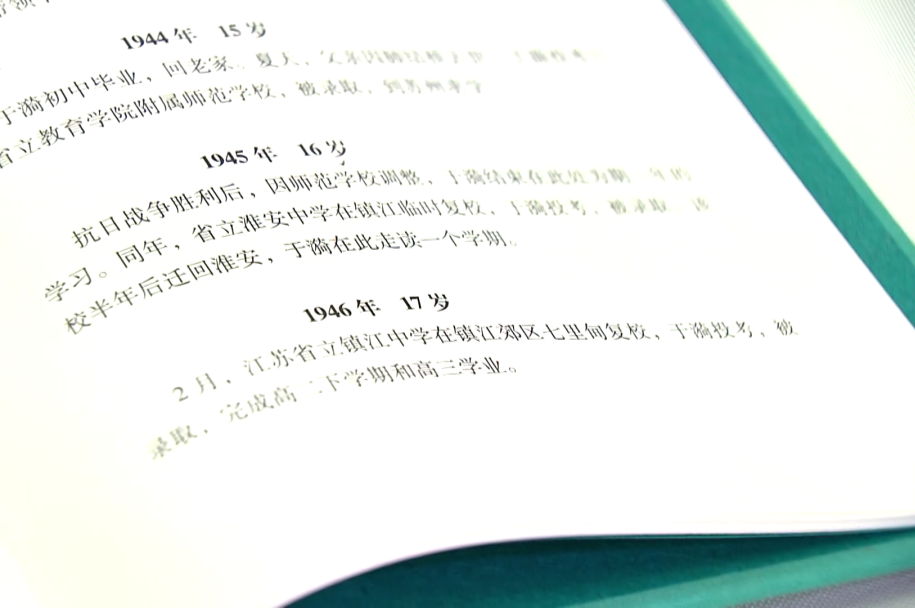 1944年 15岁
于漪初中毕业，回老家。夏天，父亲因肺结核
省立教育学院附属师范学校，被录取，到苏州求学
1945年 16岁
抗日战争胜利后，因师范学校调整，于漪结束在此处为期一年的
学习。同年，省立淮安中学在镇江临时复校，于漪投考，被录取。该
校半年后迁回淮安，于漪在此走读一个学期。
1946年 17岁
2月，江苏省立镇江中学在镇江郊区七里甸复校，于漪投考，被
录取，完成高二下学期和高三学业。